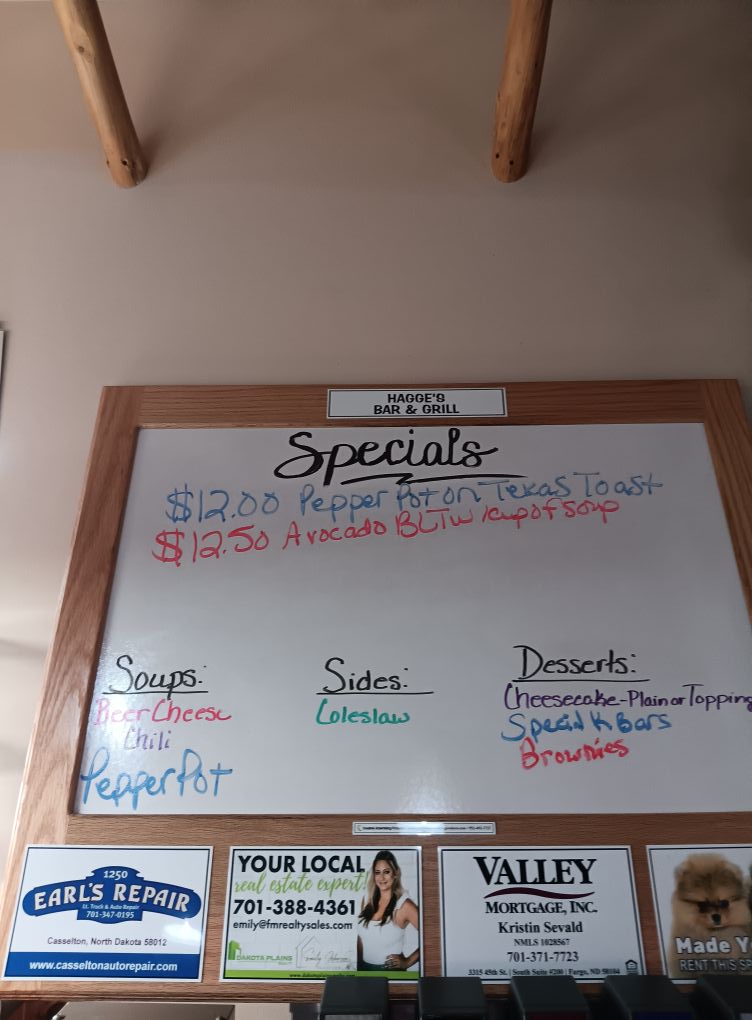 HAGGE'S
BAR & GRILL
Specials
$12.00 Pepper Pot on Texas Toast
$12.50 Avocado BLT w/cup of soup
Soups:
Beer Cheese
Chili
Pepper Pot
Sides:
Coleslaw
Desserts:
Cheesecake-Plain or Topping
Special K Bars
Brownies
1250
EARL'S REPAIR
Lt. Truck & Auto Repair
701-347-0195
Casselton, North Dakota 58012
www.casseltonautorepair.com
YOUR LOCAL
real estate expert!
701-388-4361
emily@fmrealtysales.com
DAKOTA PLAINS
VALLEY
MORTGAGE, INC.
Kristin Sevald
NMLS 1028567
701-371-7723
3315 45th St. | South Suite #200 | Fargo, ND 58104
Made Y
RENT THIS SP